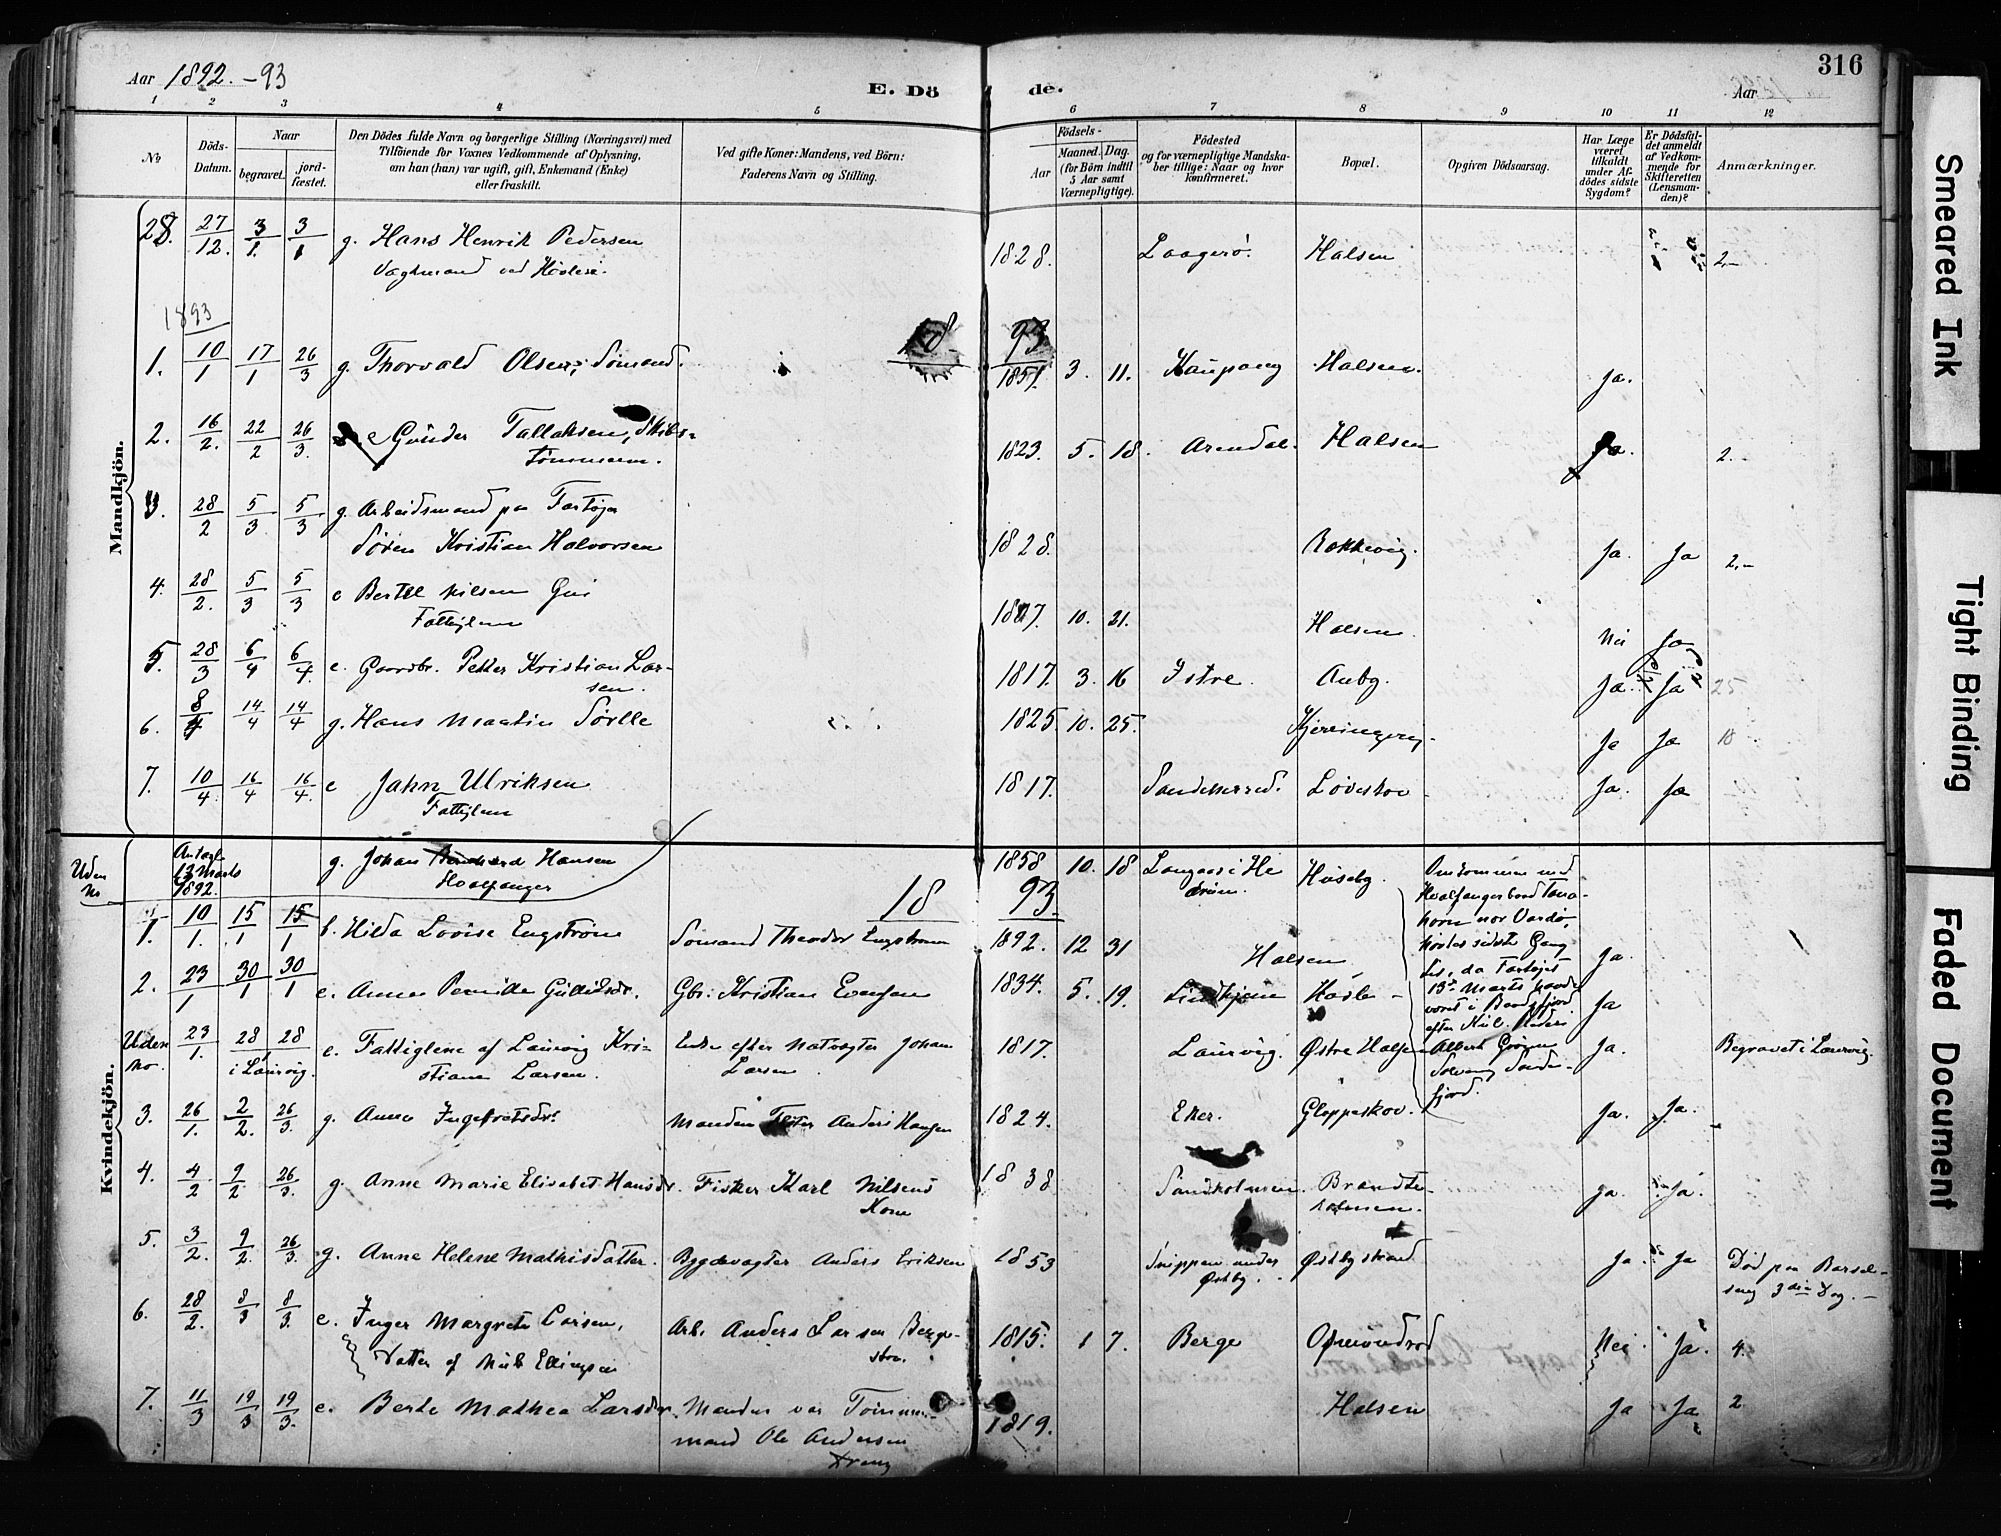 Aar 1892.-93
E. Dö
de.
Aar
316
1 2 3 4 5 6 7 8 9 10 11 12
No
Döds-Datum.
Naar
begravet.
jord-fæstet.
Den Dödes fulde Navn og borgerlige Stilling (Næringsvei) med
Tilföiende for Voxnes Vedkommende af Oplysning,
om han (hun) var ugift, gift, Enkemand (Enke)
eller fraskilt.
Ved gifte Koner: Mandens, ved Börn:
Faderens Navn og Stilling.
Födsels-
Aar
Maaned. Dag.
(for Börn indtil
5 Aar samt
Værnepligtige).
Födested
og for værnepligtige Mandska-
ber tillige: Naar og hvor
konfirmeret.
Bopæl.
Opgiven Dödsaarsag.
Har Læge
været
tilkaldt
under Af-
dödes sidste
Sygdom?
Er Dödsfal-
det anmeldt
af Vedkom-
mende for
Skifteretten
(Lensman-
den)?
Anmærkninger.
Mandkjön.
28. 27/12. 3/1. 3/1 g. Hans Henrik Pedersen 1828. Laagerö. Halsen 2,-
Vagtmand ved
1893
18 93
1. 10/1 17/1 26/3 g. Thorvald Olsen, Sömand. 1851. 3. 11. Kaupang Halsen. Ja.
2. 16/2. 22/2 26/3. e Gunder Tallaksen, Skibs-
Tömmerm. 1823. 5. 18. Arendal. Halsen Ja. 2.-
3. 28/2 5/3 5/3 g. Arbeidsmand paa Fartöjer
Sören Kristian Halvorsen 1828. Rekkevig. Ja. Ja 2,-
4. 28/2. 5/3 5/3 e Bertel Nilsen
Fattiglem 1817. 10. 21. Halsen. Nei Ja
5. 28/3 6/4 6/4. e. Gaardbr. Petter Kristian Lar-
sen. 1817. 3. 16 Istre. Auby. Ja. Ja 25
6. 8/4 14/4 14/4 g. Hans Martin Sörlle 1825. 10. 25. Ja Ja 18
7. 10/4. 16/4 16/4. e Jahn Ulriksen
Fattiglem 1817. Sandeherred. Löveskov Ja. Ja
Uden No Antagl. 13 Marts 1892. g. Johan Bernhard Hansen
Hvalfanger 1858 10. 18 Langaas i He-
drum. Huseby. Omkommen med
Hvalfangerbaad Tana-
horn nor Vardö,
hörtes sidste Gang
fra, da Fartöjet
13de Marts havde
været i Baadsfjord
efter Kul. Rederi
Albert Grön
Solvang Sande-
fjord.
Kvindekjön.
18 93.
1. 10/1. 15/1 15/1 b. Hilda Lovise Engström Sömand Theodor Engström 1892. 12 31 Halsen Ja.
2. 23/1 30/1 30/1 e. Anna Pernille Gulliksdr. Gbr: Kristian Evensen 1834. 5. 19. Lindhjem Hasle - Ja
Uden No. 23/1. 28/1 28 i Laurvig. e. Fattiglem af Laurvig Kri-
stiane Larsen. Enke efter Natvægter Johan
Larsen 1817. Laurvig. Østre Halsen Ja. Begravet i Laurvig.
3. 26/1. 2/2. 26/3. g. Anna Ingebretsdr. Manden Anders Hansen 1824. Eker. Gloppeskov. Ja. Ja.
4. 4/2 9/2. 26/3. g. Anne Marie Elisabet Hansdr. Fisker Karl Nilsens
Kone 1838 Sandholmen. Brandts-
holmen. Ja. Ja.
5. 3/2. 9/2. 26/3. g. Anne Helene Mathisdatter. Bygdevægter Anders Eriksen 1853 Snippen under
Østby. Østbystrand Ja. Ja Död paa Barsel-
seng 3die Dag.-
6. 28/2. 8/3 8/3. e. Inger Margrete Larsen,
Datter af Niels Ellingsen Arb. Anders Larsen Berge-
skov. 1815. 1 7. Berge Omundrød Nei. Ja. 4.
7. 11/3 19/3 19/3. e. Berte Mathea Larsdr. Manden var Tömmer-
mand Ole Andersen
Kreng 1819. Halsen Ja Ja 2
Smeared Ink
Tight Binding
Faded Document